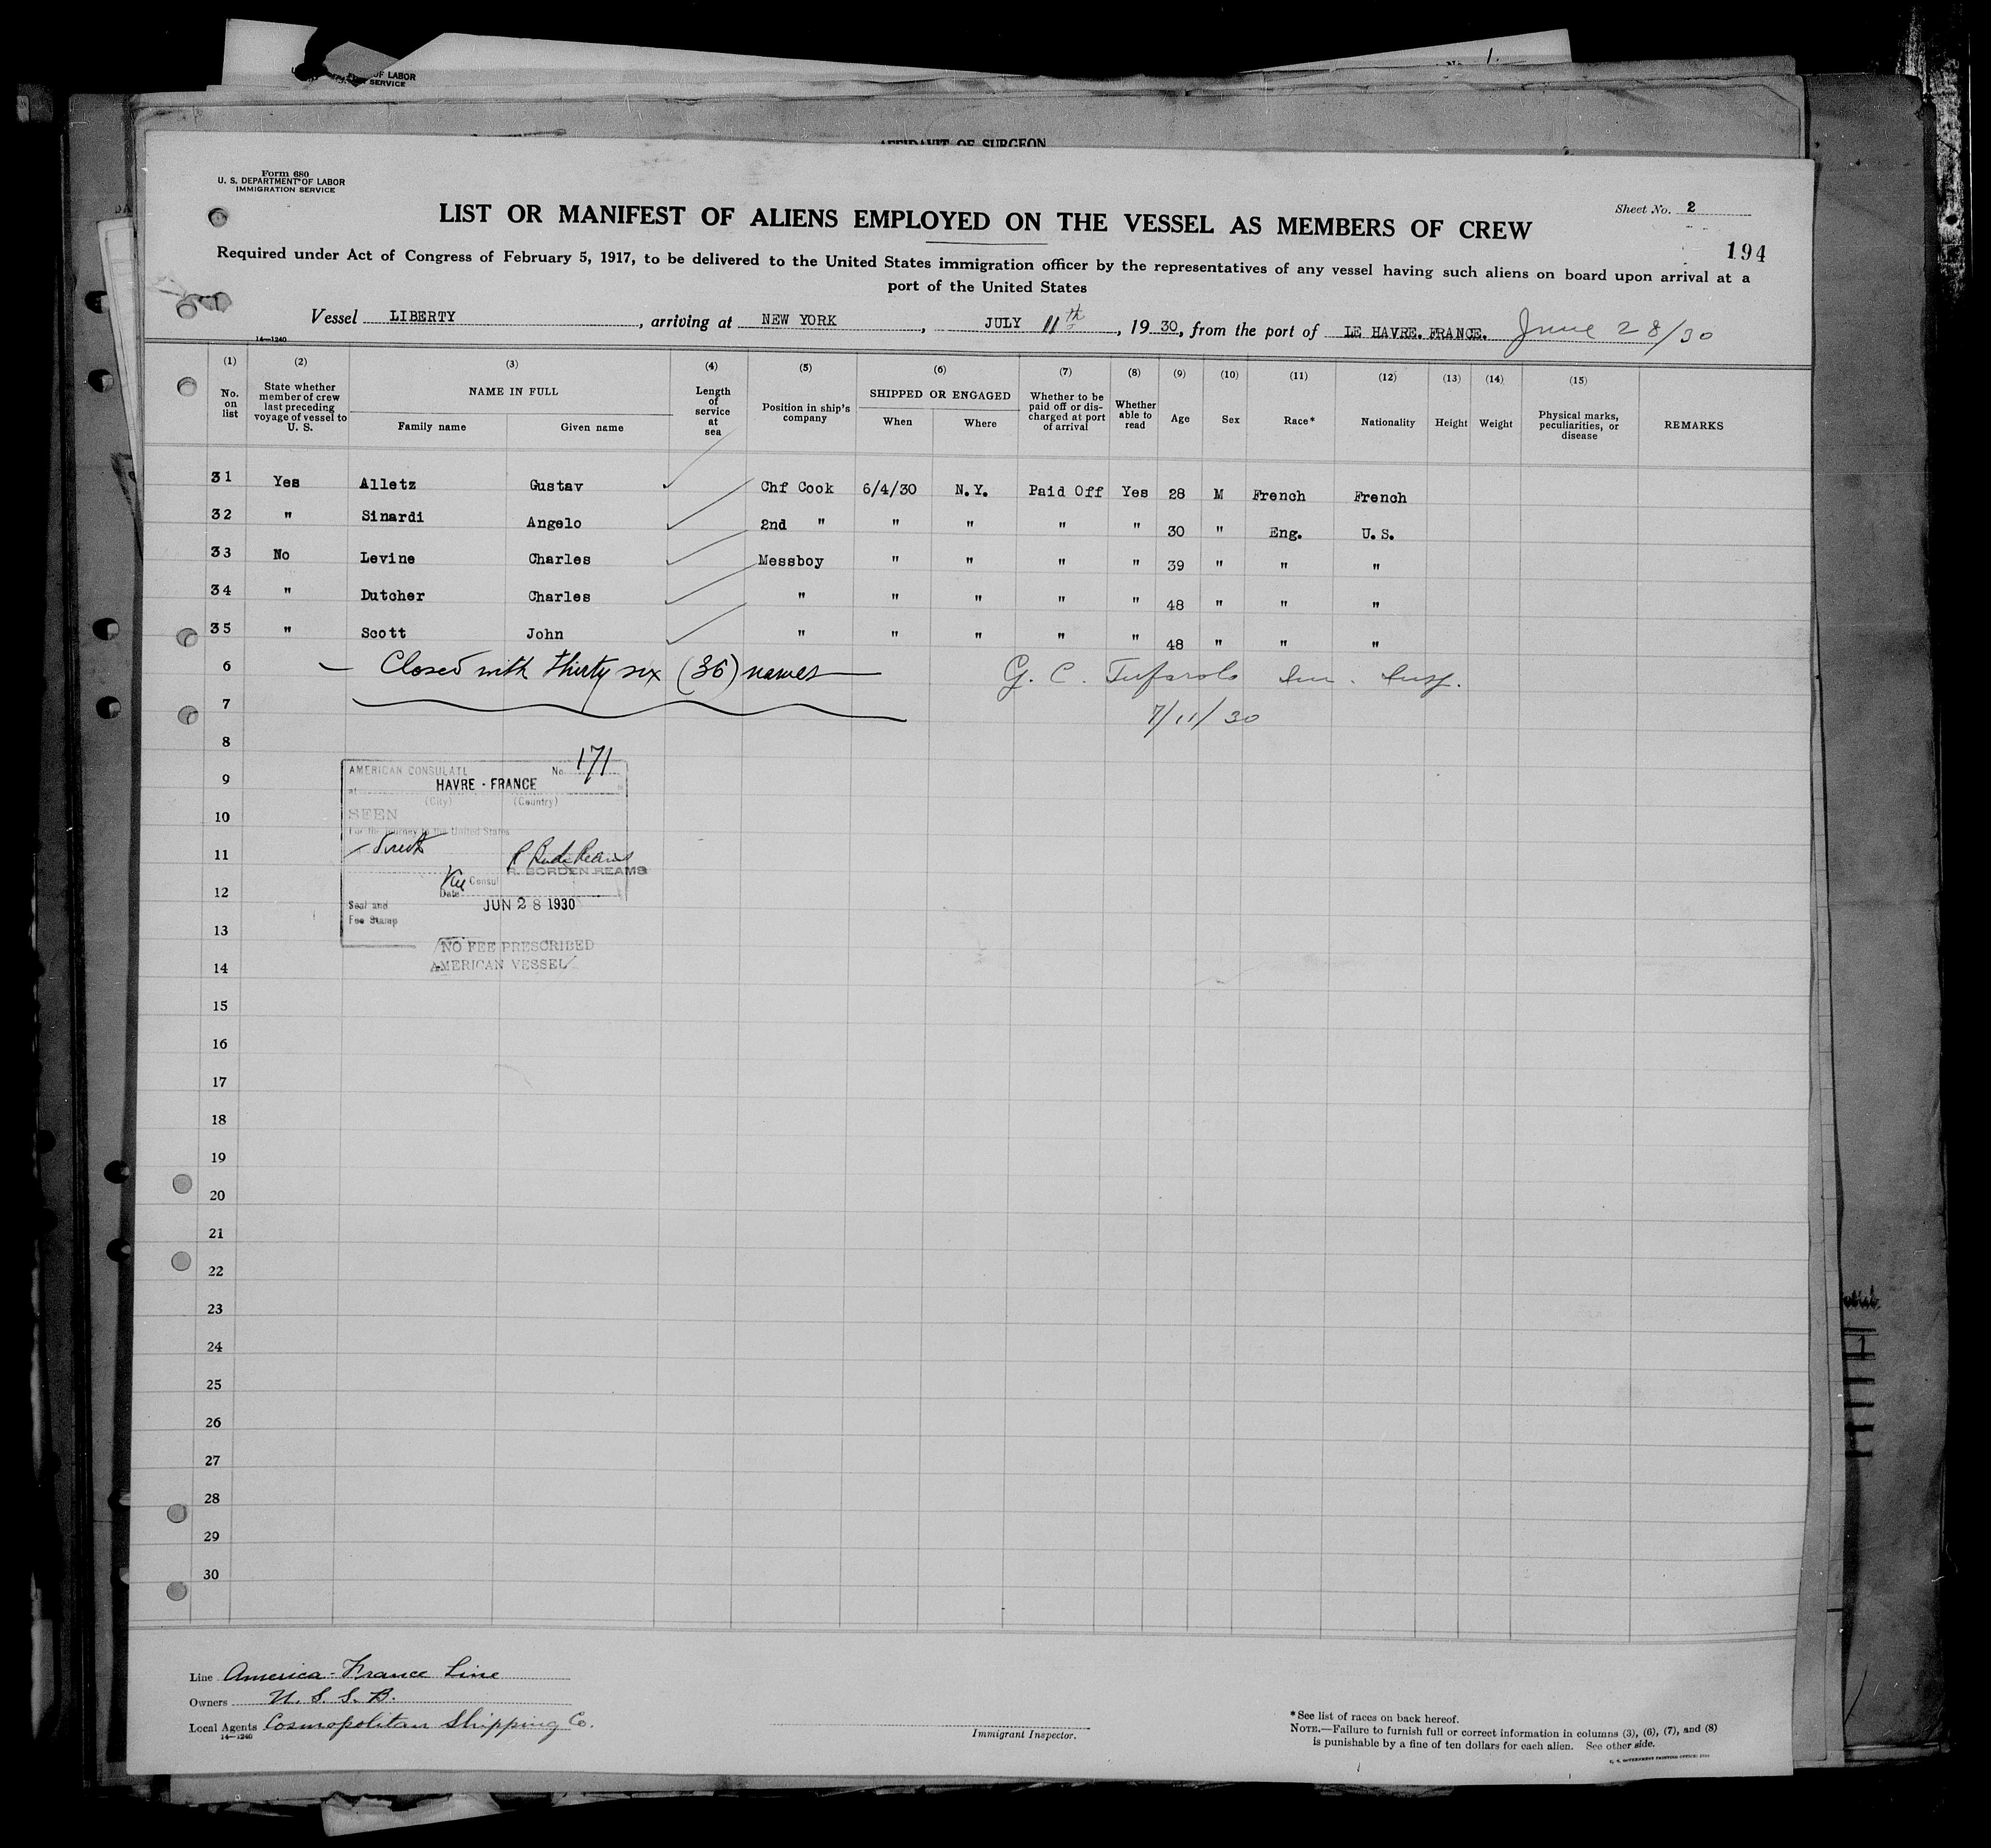 OF LABOR
SERVICE
AFFIDAVIT OF SURGEON
Form 680
U. S. DEPARTMENT OF LABOR
IMMIGRATION SERVICE
Sheet No. 2
LIST OR MANIFEST OF ALIENS EMPLOYED ON THE VESSEL AS MEMBERS OF CREW
194
Required under Act of Congress of February 5, 1917, to be delivered to the United States immigration officer by the representatives of any vessel having such aliens on board upon arrival at a
port of the United States
Vessel LIBERTY, arriving at NEW YORK, JULY 11th, 1930, from the port of LE HAVRE. FRANCE. June 28/30
14—1240
(1) (2) (3) (4) (5) (6) (7) (8) (9) (10) (11) (12) (13) (14) (15)
No. on list State whether member of crew last preceding voyage of vessel to U. S. NAME IN FULL Family name Given name Length of service at sea Position in ship's company SHIPPED OR ENGAGED When Where Whether to be paid off or discharged at port of arrival Whether able to read Age Sex Race* Nationality Height Weight Physical marks, peculiarities, or disease REMARKS
31 Yes Alletz Gustav Chf Cook 6/4/30 N.Y. Paid Off Yes 28 M French French
32 " Sinardi Angelo 2nd " " " " " 30 " Eng. U.S.
33 No Levine Charles Messboy " " " " 39 " " "
34 " Dutcher Charles " " " " " 48 " " "
35 " Scott John " " " " " 48 " " "
6 — Closed with thirty six (36) names — G. C. Imm. Insp.
7 7/11/30
8
9
10
11
12
13
14
15
16
17
18
19
20
21
22
23
24
25
26
27
28
29
30
AMERICAN CONSULATE No. 171
at HAVRE - FRANCE
(City) (Country)
SEEN
For the journey to the United States
direct
R. BORDEN REAMS
Vice Consul
Date JUN 28 1930
Seal and
Fee Stamp
NO FEE PRESCRIBED
AMERICAN VESSEL
Line America-France Line
Owners U. S. S. B.
Local Agents Cosmopolitan Shipping Co.
14—1240
Immigrant Inspector.
*See list of races on back hereof.
NOTE.—Failure to furnish full or correct information in columns (3), (6), (7), and (8)
is punishable by a fine of ten dollars for each alien. See other side.